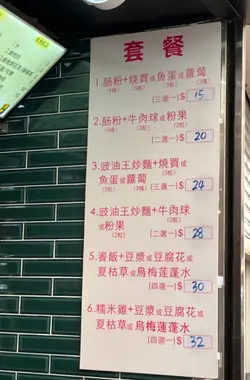 套餐
1.腸粉+燒賣或魚蛋或蘿蔔
(三選一)$ 15
2.腸粉+牛肉球或粉果
(二選一)$ 20
3.豉油王炒麵+燒買或
魚蛋或蘿蔔
(三選一)$ 24
4.豉油王炒麵+牛肉球
或粉果
(二選一)$ 28
5.飯+豆漿或豆腐花或
夏枯草或烏梅蓮蓬水
(四選一)$ 30
6.糯米雞+豆漿或豆腐花或
夏枯草或烏梅蓮蓬水
(四選一)$ 32